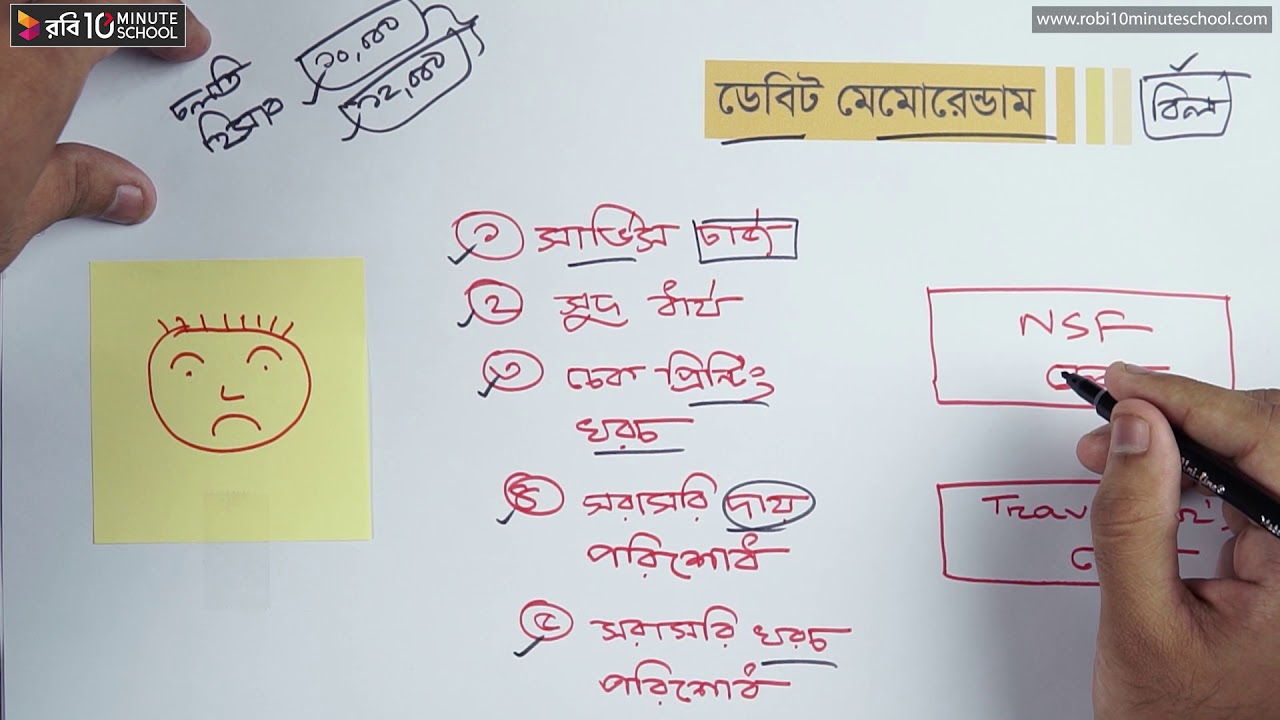 রবি 10 MINUTE SCHOOL
www.robi10minuteschool.com
চলতি
হিসাব
২০,০০০
১২,০০০
ডেবিট মেমোরেন্ডাম
বিল
১ সার্ভিস চার্জ
২ সুদ ধার্য
৩ চেক প্রিন্টিং
খরচ
৪ সরাসরি দায়
পরিশোধ
৫ সরাসরি খরচ
পরিশোধ
NSF